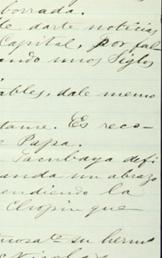 borrada.
de darte noticias
Capital, por fal
ando unos Siglos
ables, dale memo
tame. Es reco-
Papa.
Tacubaya defi
anda un abrazo
endiendo la
Chopin que
su herm